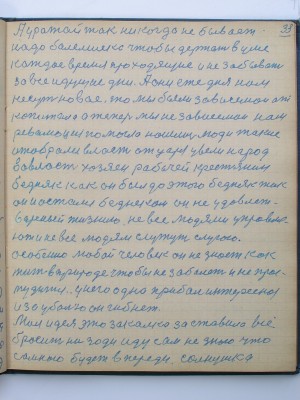 33
Пуратай так никогда не бывает
надо болеться чтобы держать в уме
каждое время проходящие и не забывать
за все идущие дни. А они эти дня нам
несут новое. то мы были зависемои от
капитала а теперь мы не зависемои нам
революция помогла нашим люди такие
отобрали власть от царя увели народ
во власть хозяен рабочей крестьянин
бедняк как он был до этого бедняк так
он и остался бедняком он не удовлет-
вореней жизнию, не все людями управля
ют и не все людям служут слугою.
особино любой человек он не знает как
жить в природе чтобы не забалеть и не прос-
тудится. у него одно прибал интересной
из-за убаго он гибнет.
Моя идея это закалка заставила всё
бросить на заде иду сам не знаю что
самною будет в переди, солнушка